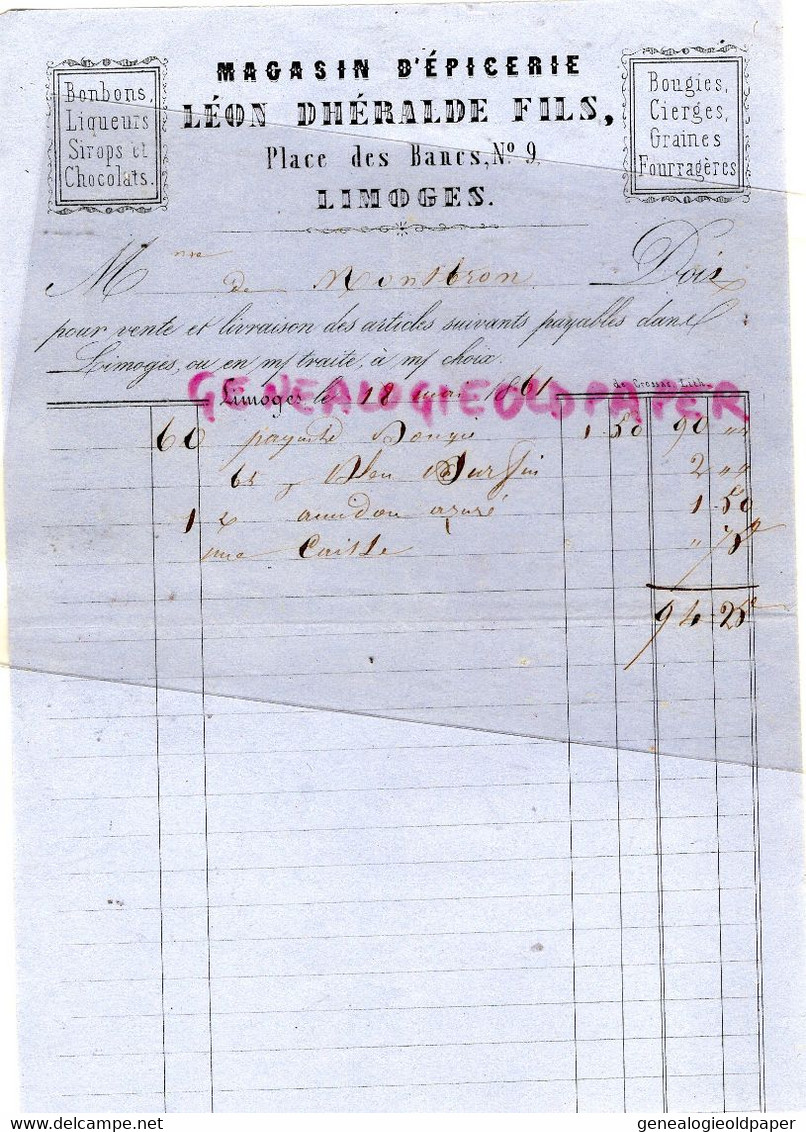 MAGASIN D'ÉPICERIE
LÉON DHÉRALDE FILS,
Place des Bancs, Nº 9,
LIMOGES.
Bonbons,
Liqueurs
Sirops et
Chocolats.
Bougies,
Cierges,
Graines
Fourragères
Mme de Montbron Doit
pour vente et livraison des articles suivants payables dans
Limoges, ou en m/ traite, à m/ choix.
de Crossas, Lith.
Limoges le 18 mai 1861
GENEALOGIEOLDPAPER
60 paquets Bougie 1.50 90 "
Bleu Surfin 2 "
1 amidon azuré 1.50
une Caisse " 75
94.25
delcampe.net
genealogieoldpaper